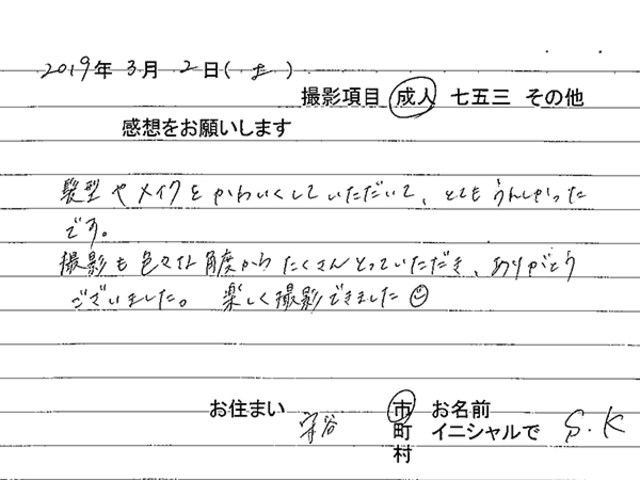 2019年 3月 2日(土)
撮影項目 成人 七五三 その他
感想をお願いします
髪型やメイクをかわいくしていただいて、とてもうれしかった
です。
撮影も色々な角度からたくさんとっていただき、ありがとう
ございました。 楽しく撮影できました☺
お住まい 守谷 市 お名前
町 イニシャルで S.K
村